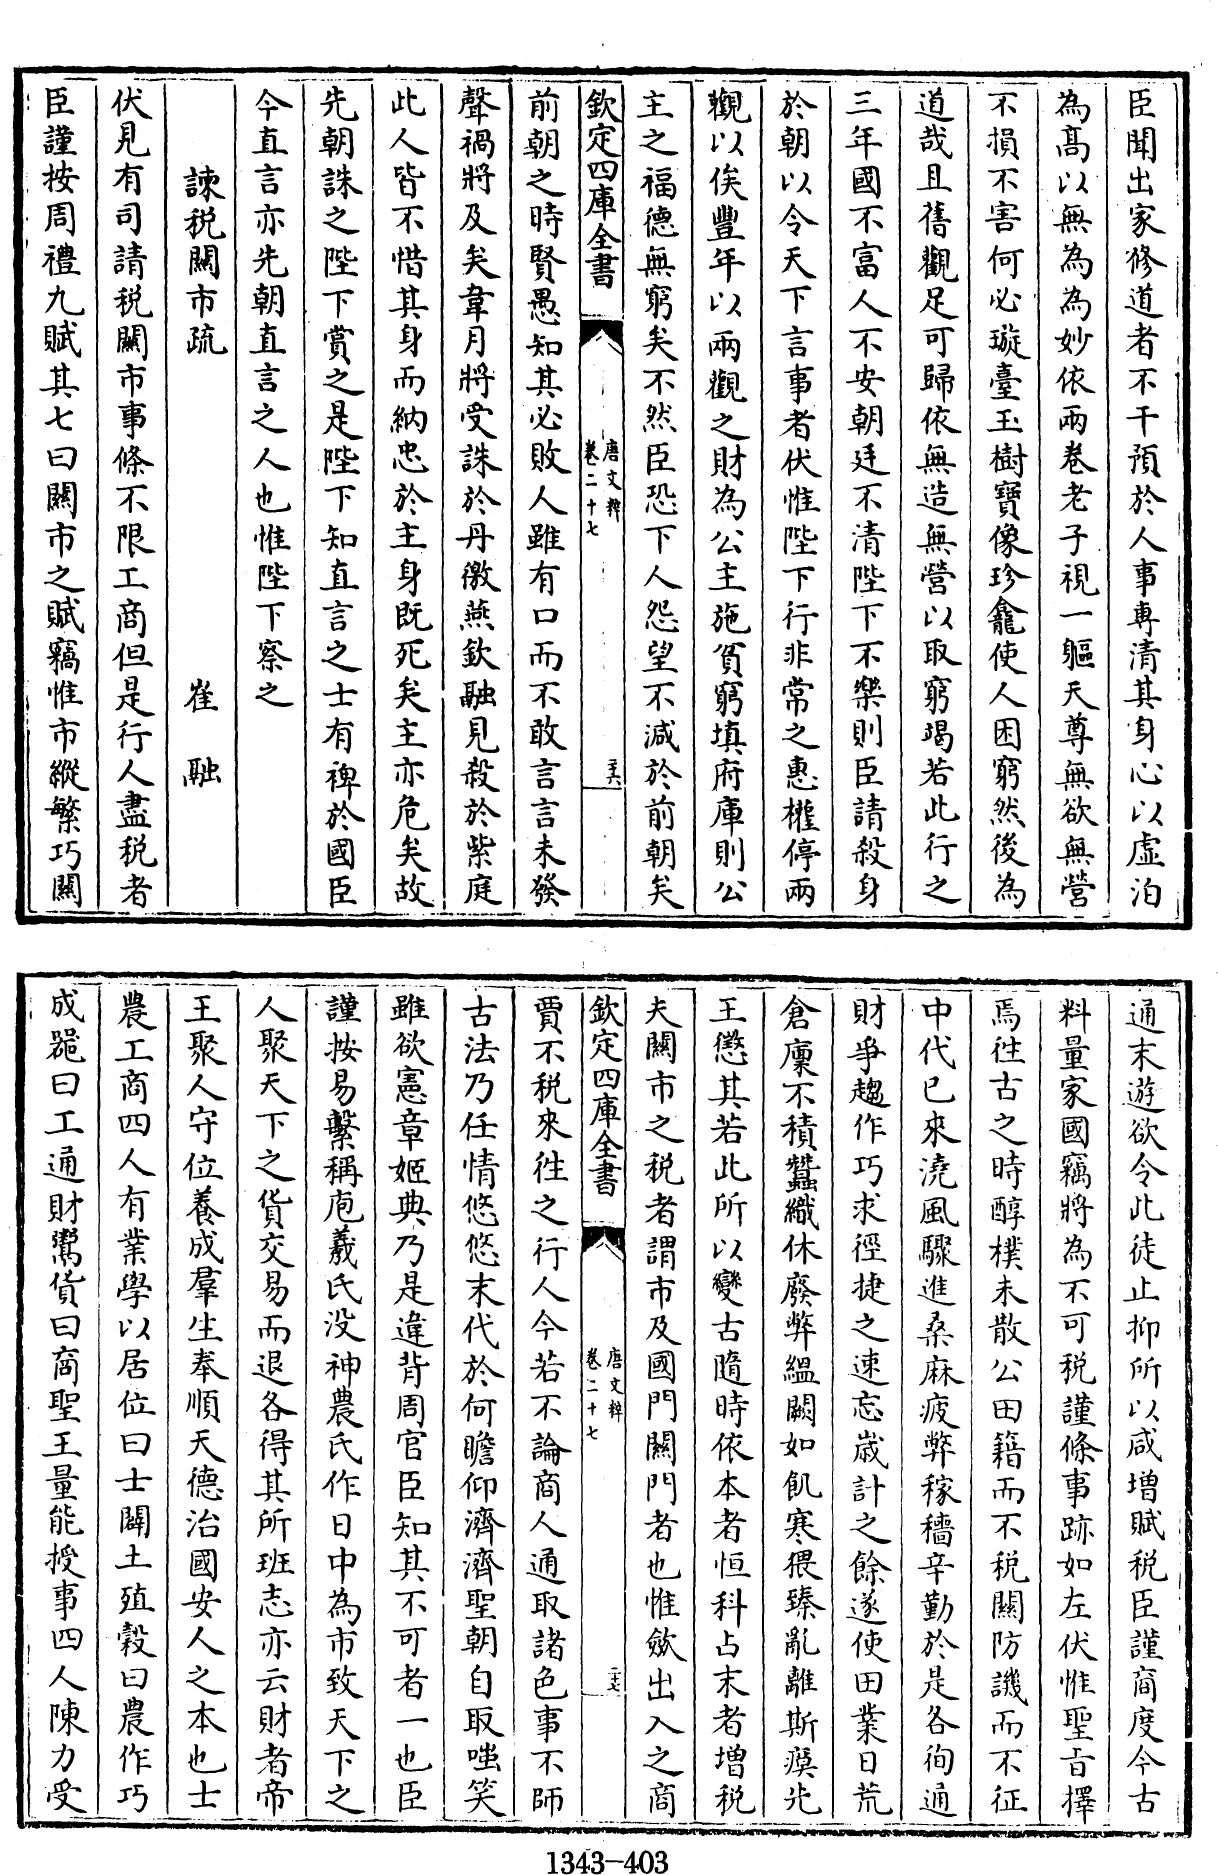 臣聞出家修道者不干預於人事專清其身心以虛泊
為髙以無為為妙依兩卷老子視一軀天尊無欲無營
不損不害何必璇臺玉樹寶像珍龕使人困窮然後為
道哉且舊觀足可歸依無造無營以取窮竭若此行之
三年國不富人不安朝廷不清陛下不樂則臣請殺身
於朝以令天下言事者伏惟陛下行非常之惠權停兩
觀以俟豐年以兩觀之財為公主施貧窮填府庫則公
主之福德無窮矣不然臣恐下人怨望不減於前朝矣
欽定四庫全書
唐文粹
卷二十七
二十六
前朝之時賢愚知其必敗人雖有口而不敢言言未發
聲禍將及矣韋月將受誅於丹徼燕欽融見殺於紫庭
此人皆不惜其身而納忠於主身既死矣主亦危矣故
先朝誅之陛下賞之是陛下知直言之士有裨於國臣
今直言亦先朝直言之人也惟陛下察之
諫税關市疏 崔融
伏見有司請税關市事條不限工商但是行人盡税者
臣謹按周禮九賦其七曰關市之賦竊惟市縱繁巧關
通末遊欲令此徒止抑所以咸增賦税臣謹商度今古
料量家國竊將為不可税謹條事跡如左伏惟聖旨擇
焉徃古之時醇樸未散公田籍而不税關防譏而不征
中代已來澆風驟進桑麻疲弊稼穡辛勤於是各徇通
財爭趨作巧求徑捷之速忘歲計之餘遂使田業日荒
倉廩不積蠶織休廢弊緼闕如飢寒猥臻亂離斯瘼先
王懲其若此所以變古隨時依本者恒科占末者增税
夫關市之税者謂市及國門關門者也惟斂出入之商
欽定四庫全書
唐文粹
卷二十七
二十七
賈不税來徃之行人今若不論商人通取諸色事不師
古法乃任情悠悠末代於何瞻仰濟濟聖朝自取嗤笑
雖欲憲章姬典乃是違背周官臣知其不可者一也臣
謹按易繫稱庖羲氏没神農氏作日中為市致天下之
人聚天下之貨交易而退各得其所班志亦云財者帝
王聚人守位養成羣生奉順天德治國安人之本也士
農工商四人有業學以居位曰士闢土殖穀曰農作巧
成器曰工通財鬻貨曰商聖王量能授事四人陳力受
1343-403